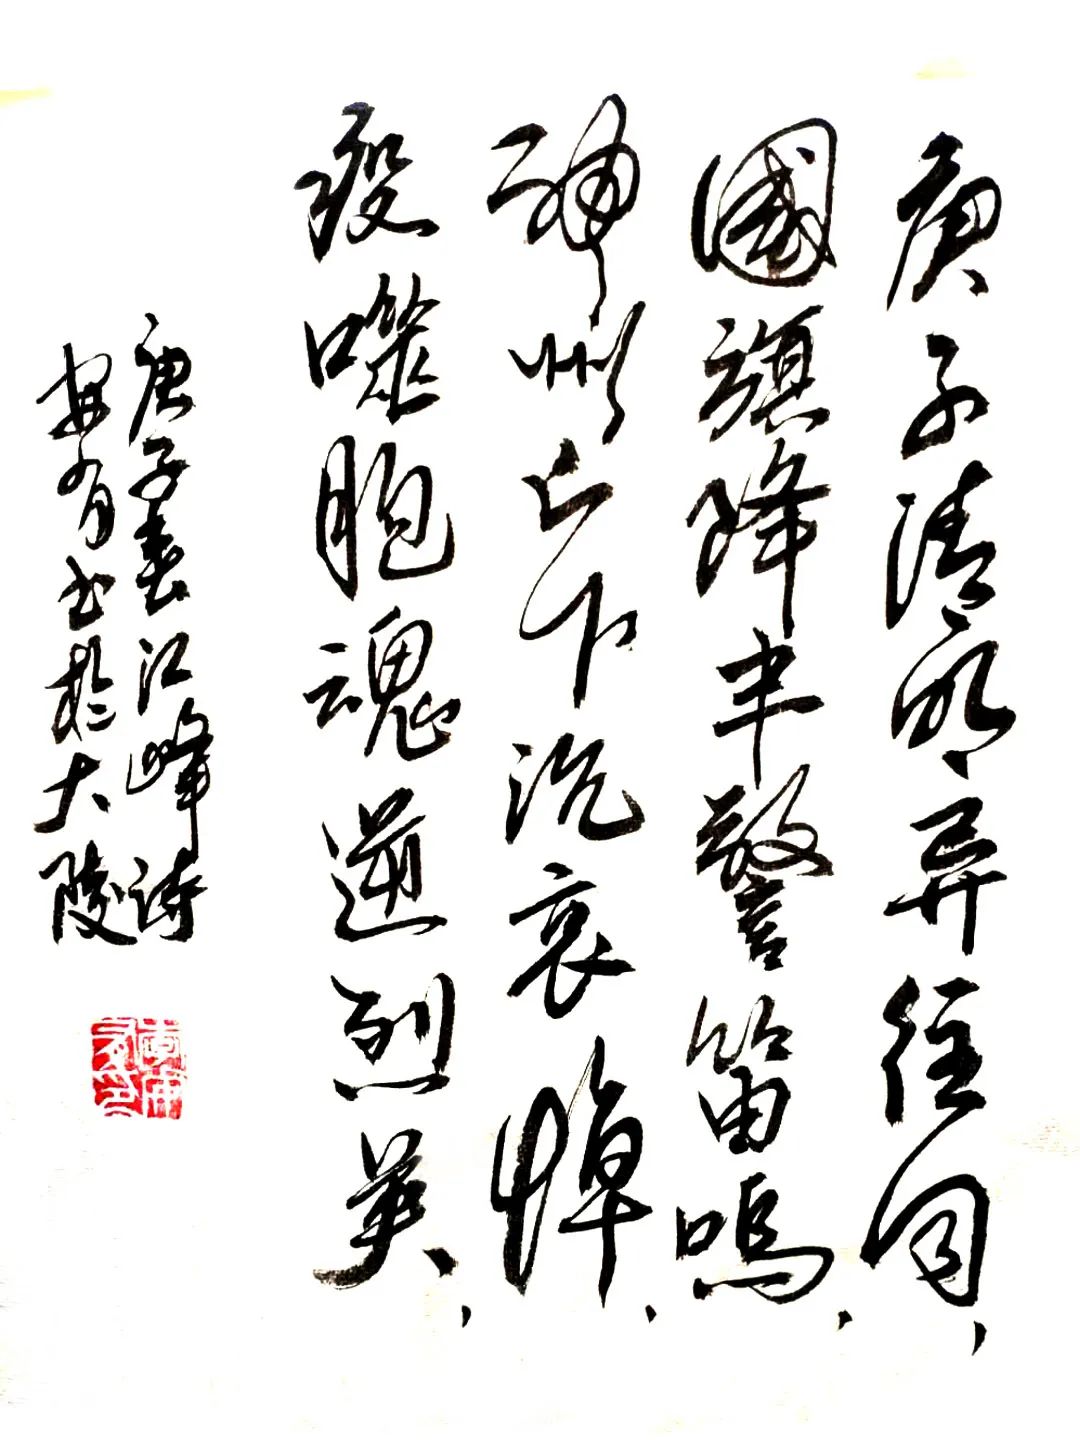 庚子清明异往同，
國旗降半警笛鳴，
神州上下沉哀悼，
疫噬胞魂烈英，
庚子春江峰诗
安有书於大陵